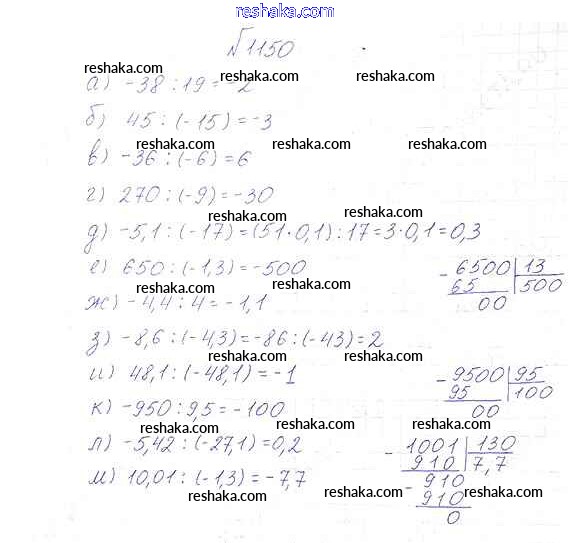 reshaka.com
№1150
reshaka.com
а) -38 : 19 = -2
reshaka.com
б) 45 : (-15) = -3
reshaka.com reshaka.com reshaka.com
в) -36 : (-6) = 6
г) 270 : (-9) = -30
reshaka.com
д) -5,1 : (-17) = (51·0,1) : 17 = 3·0,1 = 0,3
reshaka.com reshaka.com
е) 650 : (-1,3) = -500
- 6500 | 13
65 | 500
00
reshaka.com reshaka.com reshaka.com
ж) -4,4 : 4 = -1,1
з) -8,6 : (-4,3) = -86 : (-43) = 2
reshaka.com
и) 48,1 : (-48,1) = -1
- 9500 | 95
95 | 100
00
reshaka.com reshaka.com
к) -950 : 9,5 = -100
reshaka.com reshaka.com reshaka.com
л) -5,42 : (-27,1) = 0,2
м) 10,01 : (-1,3) = -7,7
- 1001 | 130
910 | 7,7
- 910
910
0
reshaka.com reshaka.com
reshaka.com